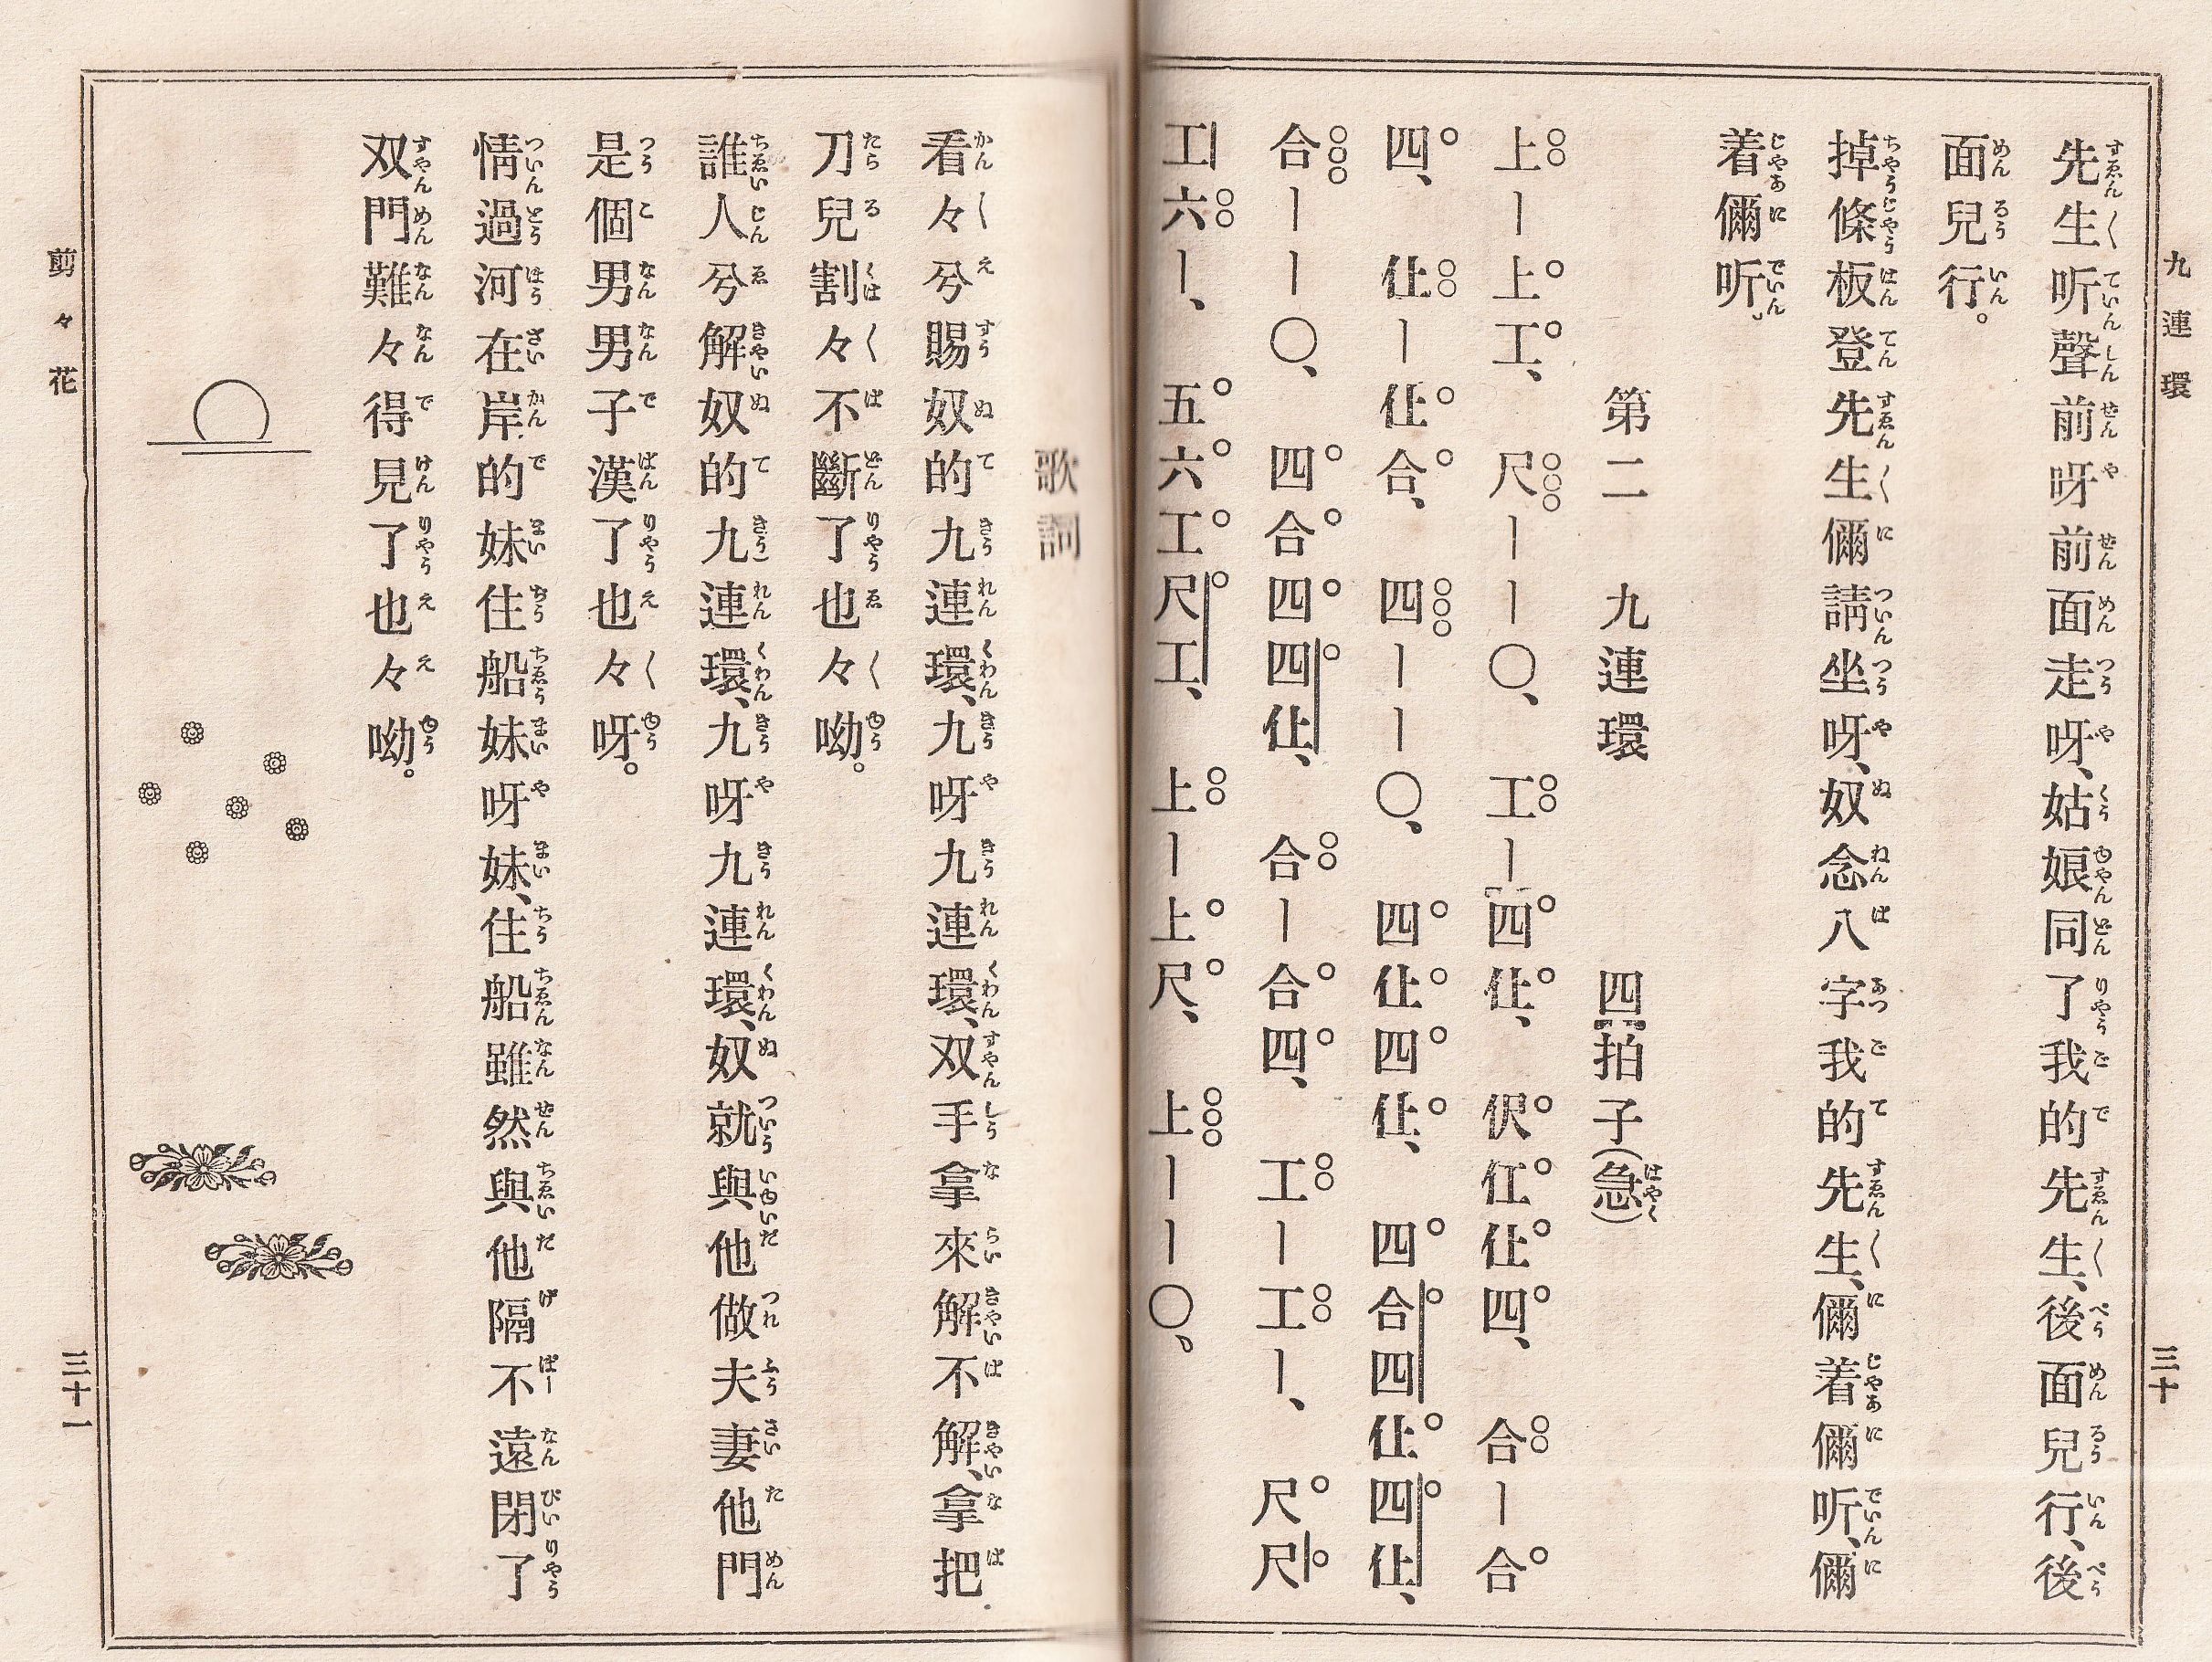 九連環
三十
先生〱听聲前呀前面走呀、姑娘同了我的先生〱、後面兒行、後
面兒行。
掉條板登先生〱儞請坐呀、奴念八字我的先生〱、儞着儞听、儞
着儞听。
第二 九連環 四拍子(急)
上ー上工、尺ーー〇、工ー四仩、伬仜仩四、合ー合
四、仩ー仩合、四ーー〇、四仩四仩、四合四仩四仩、
合ーー〇、四合四四仩、合ー合四、工ー工ー、尺尺
工六ー、五六工尺工、上ー上尺、上ーー〇。
歌詞
看々兮賜奴的九連環、九呀九連環、双手拿來解不解、拿把
刀兒割々不斷了也々呦。
誰人兮解奴的九連環、九呀九連環、奴就與他做夫妻他門
是個男男子漢了也々呀。
情過河在岸的妹住船妹呀妹、住船雖然與他隔不遠閉了
双門難々得見了也々呦。
剪々花
三十一